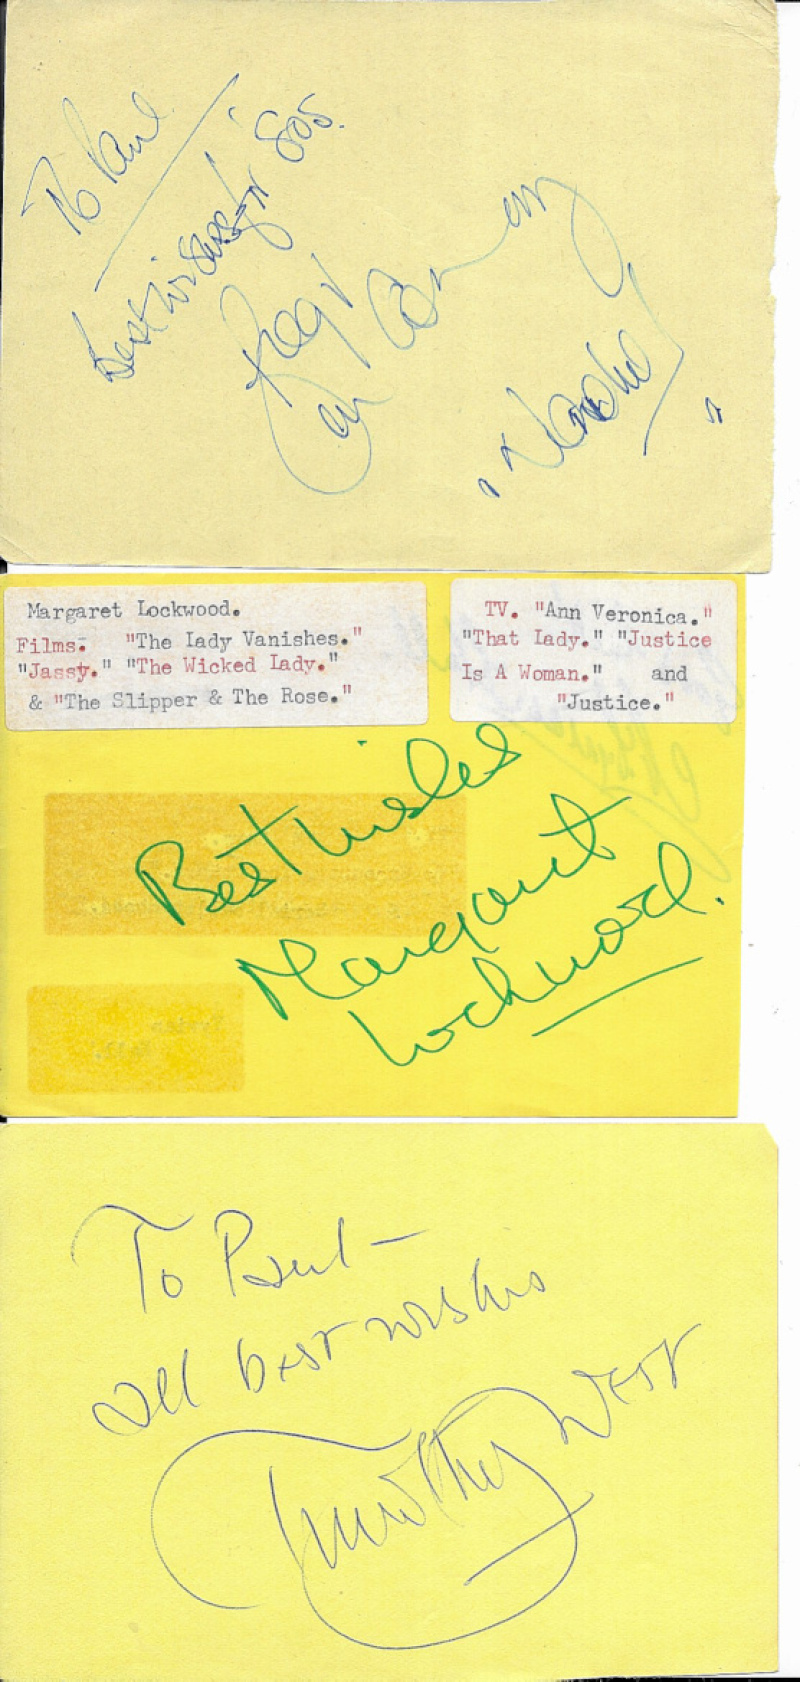 To Paul
best wishes for '80s.
Margaret Lockwood.
Films. "The Lady Vanishes."
"Jassy." "The Wicked Lady."
& "The Slipper & The Rose."
TV. "Ann Veronica."
"That Lady." "Justice
Is A Woman." and
"Justice."
Best wishes
Margaret
Lockwood.
To Paul —
all best wishes
Timothy West